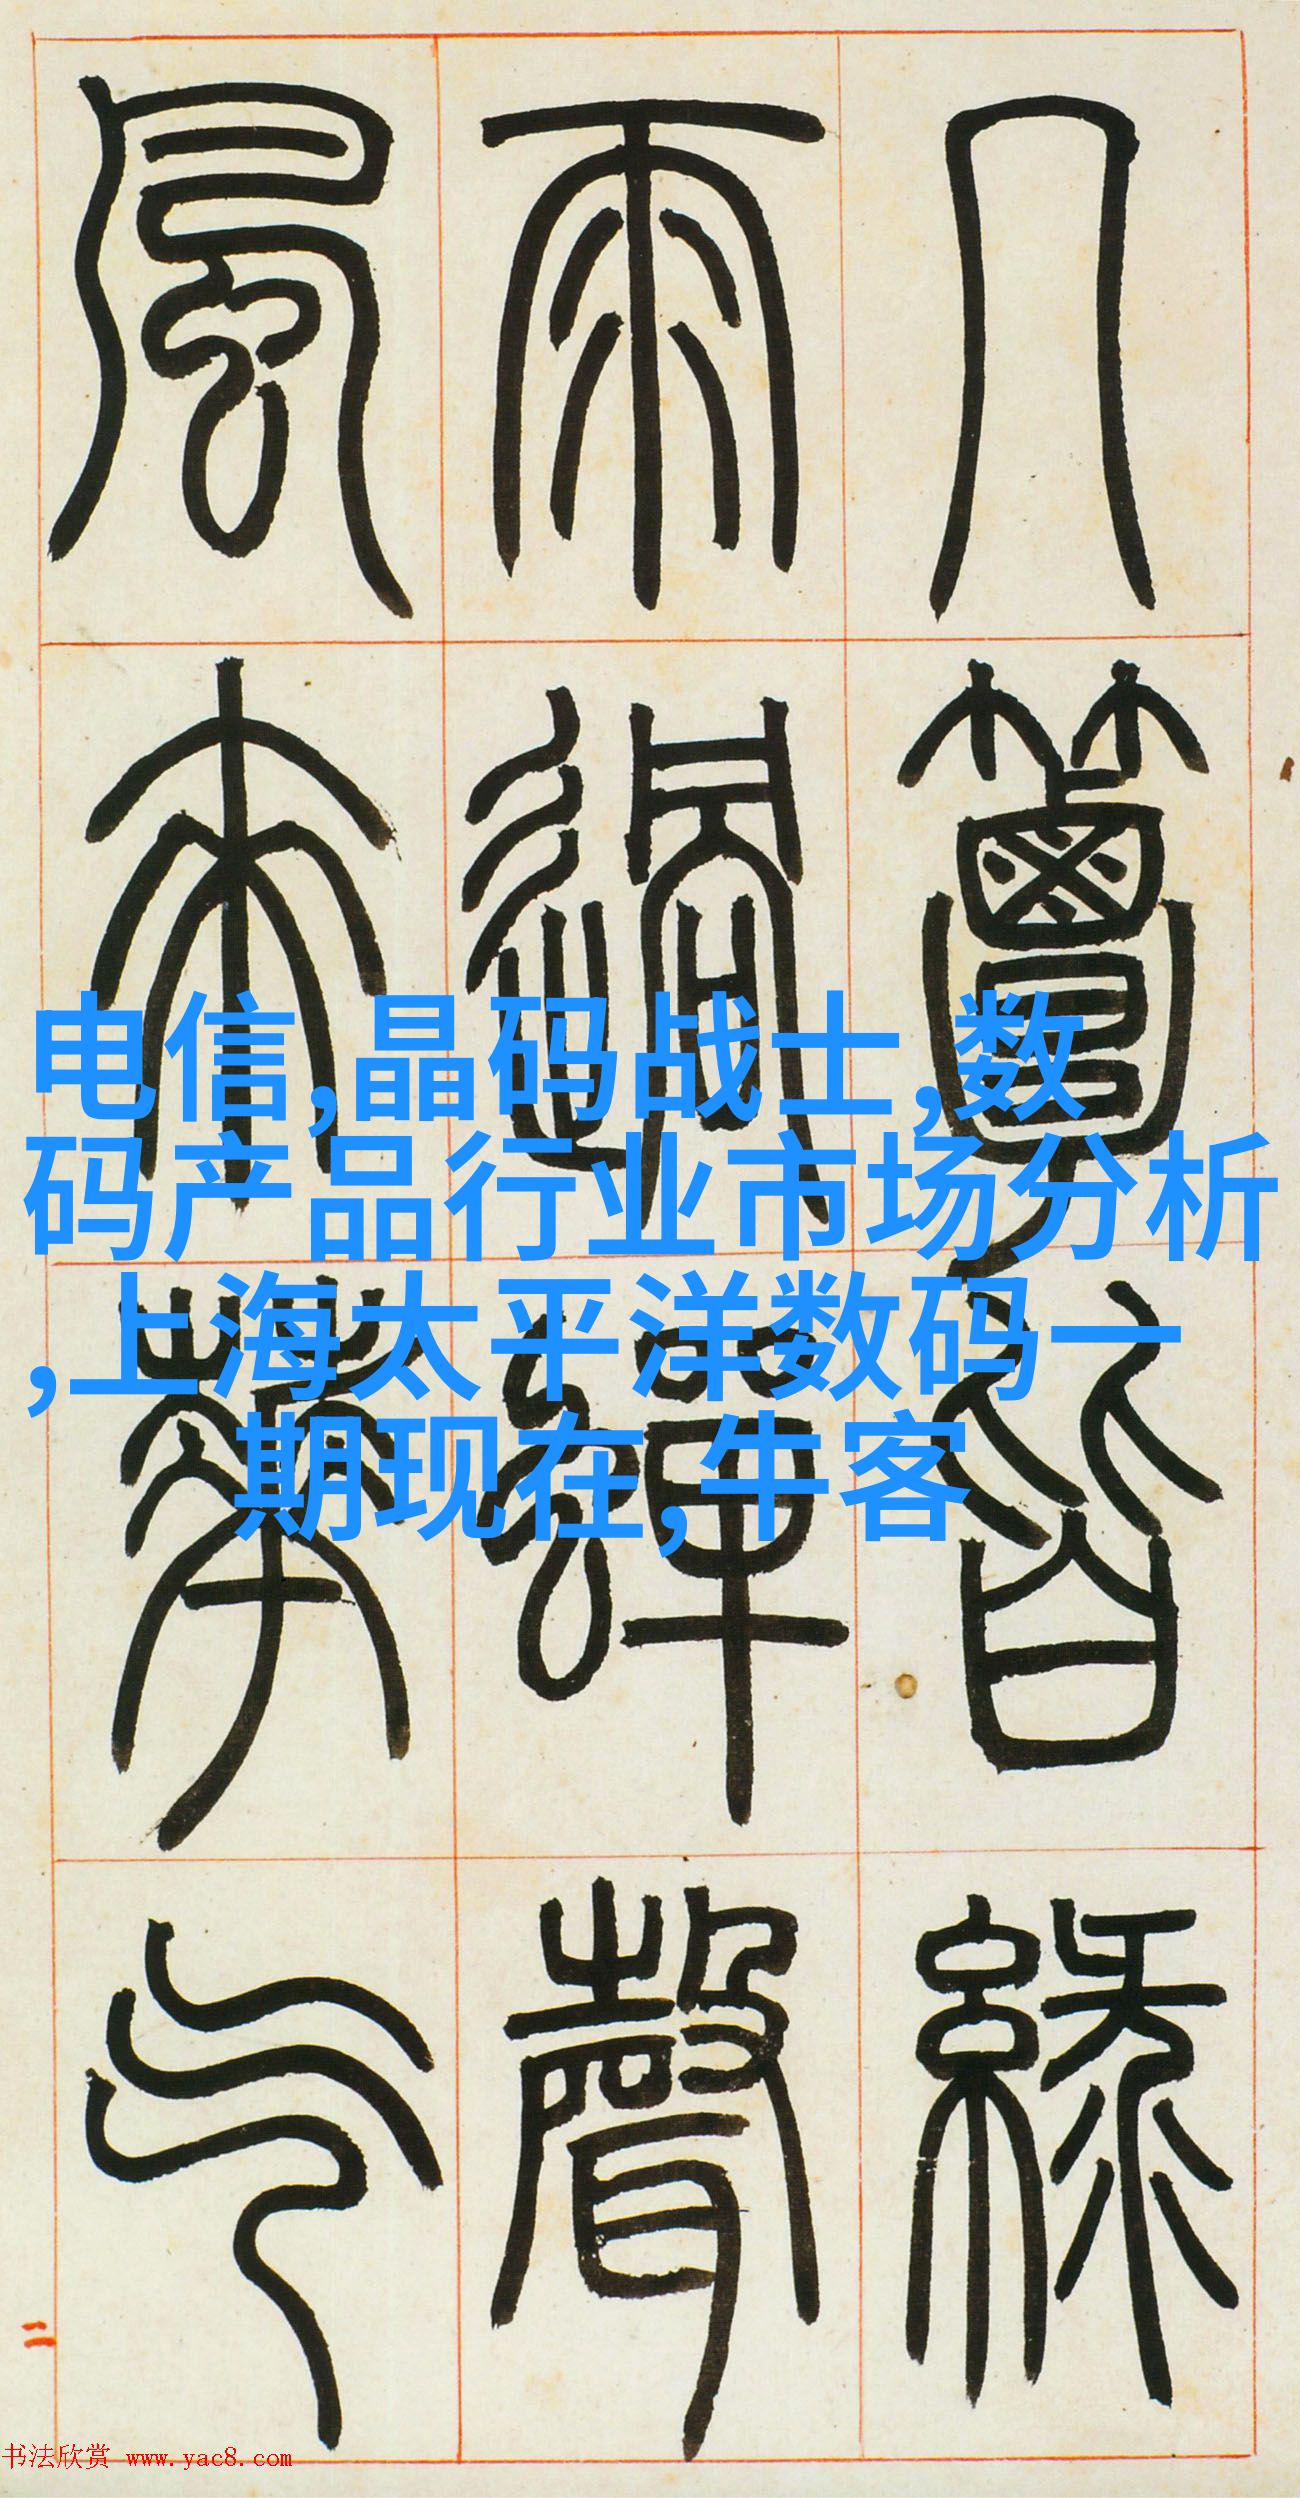 几簟皆綠
雨過蟬聲
風來華气
电信,晶码战士,数
码产品行业市场分析
,上海太平洋数码一
期现在,牛客
二
书法欣赏 www.yac8.com